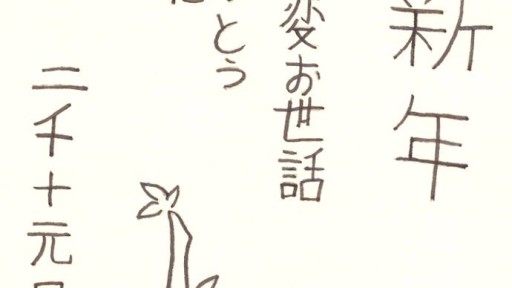 新年
変お世話
とう
二千十元